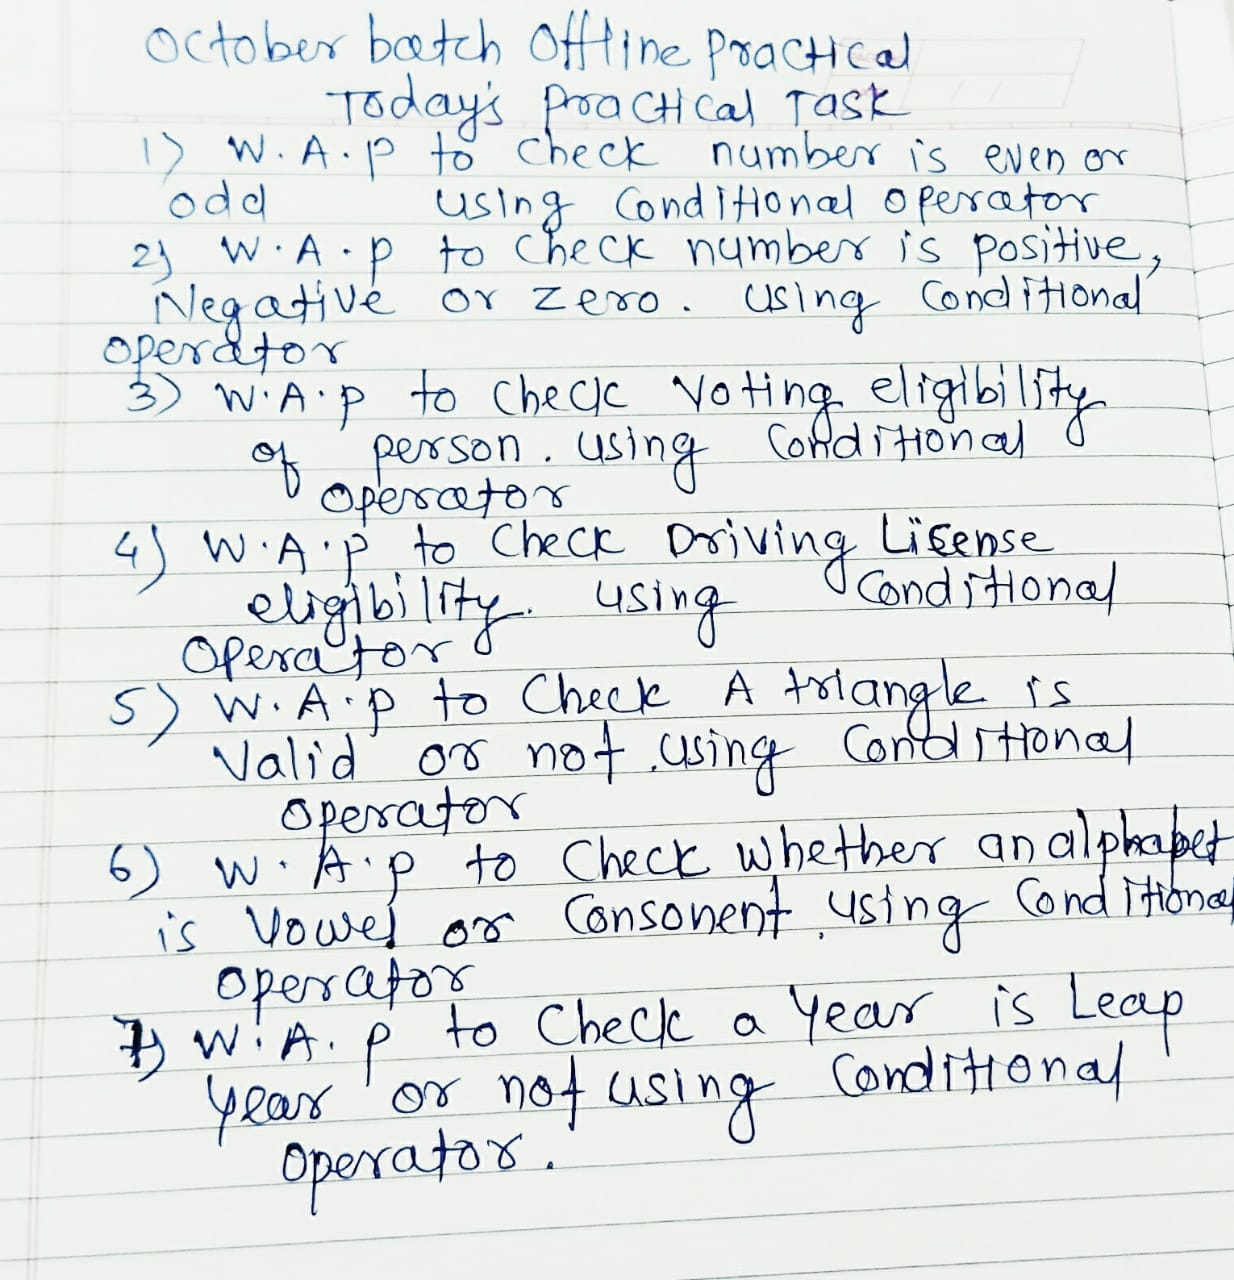 October batch Offline Practical
Today's Practical Task
1) W.A.P to check number is even or
odd using Conditional operator
2) W.A.P to check number is positive,
Negative or zero. using Conditional
operator
3) W.A.P to check Voting eligibility
of person. using Conditional
operator
4) W.A.P to Check Driving License
eligibility. using Conditional
Operator
5) W.A.P to Check A triangle is
Valid or not .using Conditional
operator
6) W.A.P to Check whether an alphabet
is Vowel or Consonent, using Conditional
operator
7) W.A.P to Check a Year is Leap
year or not using Conditional
operator.